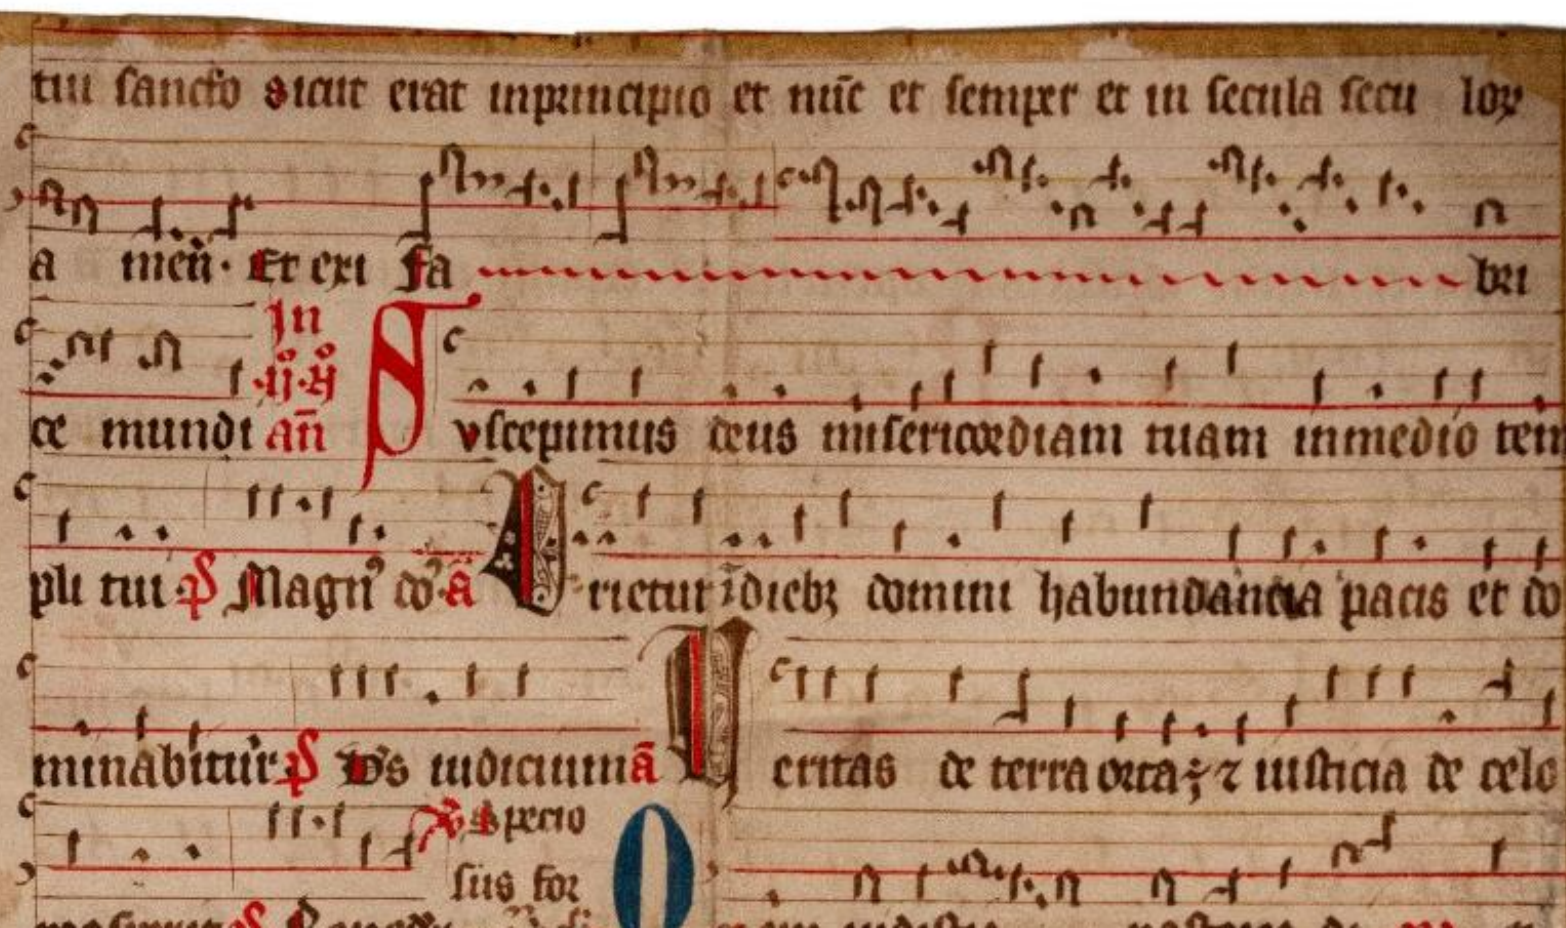 tui sancto sicut erat inprincipio et nūc et semper et in secula secu loꝝ
a men̄. Et exi Fa bri
In
ij. n̊
ce mundi an̄ Suscepimus deus misericordiam tuam inmedio tem
pli tui p̄s Magn᷒ do᷒ ā Orietur ī diebꝫ domini habundancia pacis et do
minabitur p̄s Ds iudicium ā Veritas de terra orta ÷ ⁊ iusticia de celo
Specio
sus for